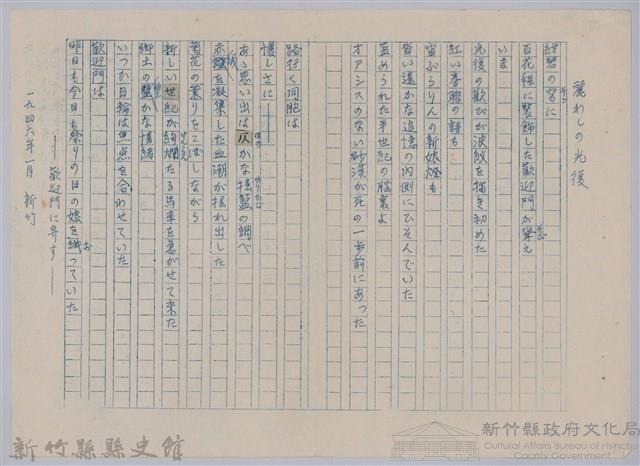 麗わしの光復
紺碧の空に
百花様に装飾した歓迎門が聳え
いま
光復の歓びが波紋を描き初めた
紅い春聯の謎も
宙ぶらりんの新娘燈も
皆い遠かな追憶の内側にひそんでいた
歪められた半世紀の脳裏よ
オアシスのない砂漠が死の一歩前にあった
路行く同胞は
懐しさに――
あゝ思い出は仄かな揺籃の調べ
赤誠を凝集した血潮が揺れ出した
菊花の薫りをこぼしながら
新しい世紀が絢爛たる馬車を急がせて来た
郷土の豊かな情緒
いつか日輪は焦点を合わせていた
歓迎門は
昨日も今日も祭りの日の娘を織っていた
――歓迎門に寄す――
一九四六年一月 新竹
新竹縣縣史館
新竹縣政府文化局
Cultural Affairs Bureau of Hsinchu
County Government